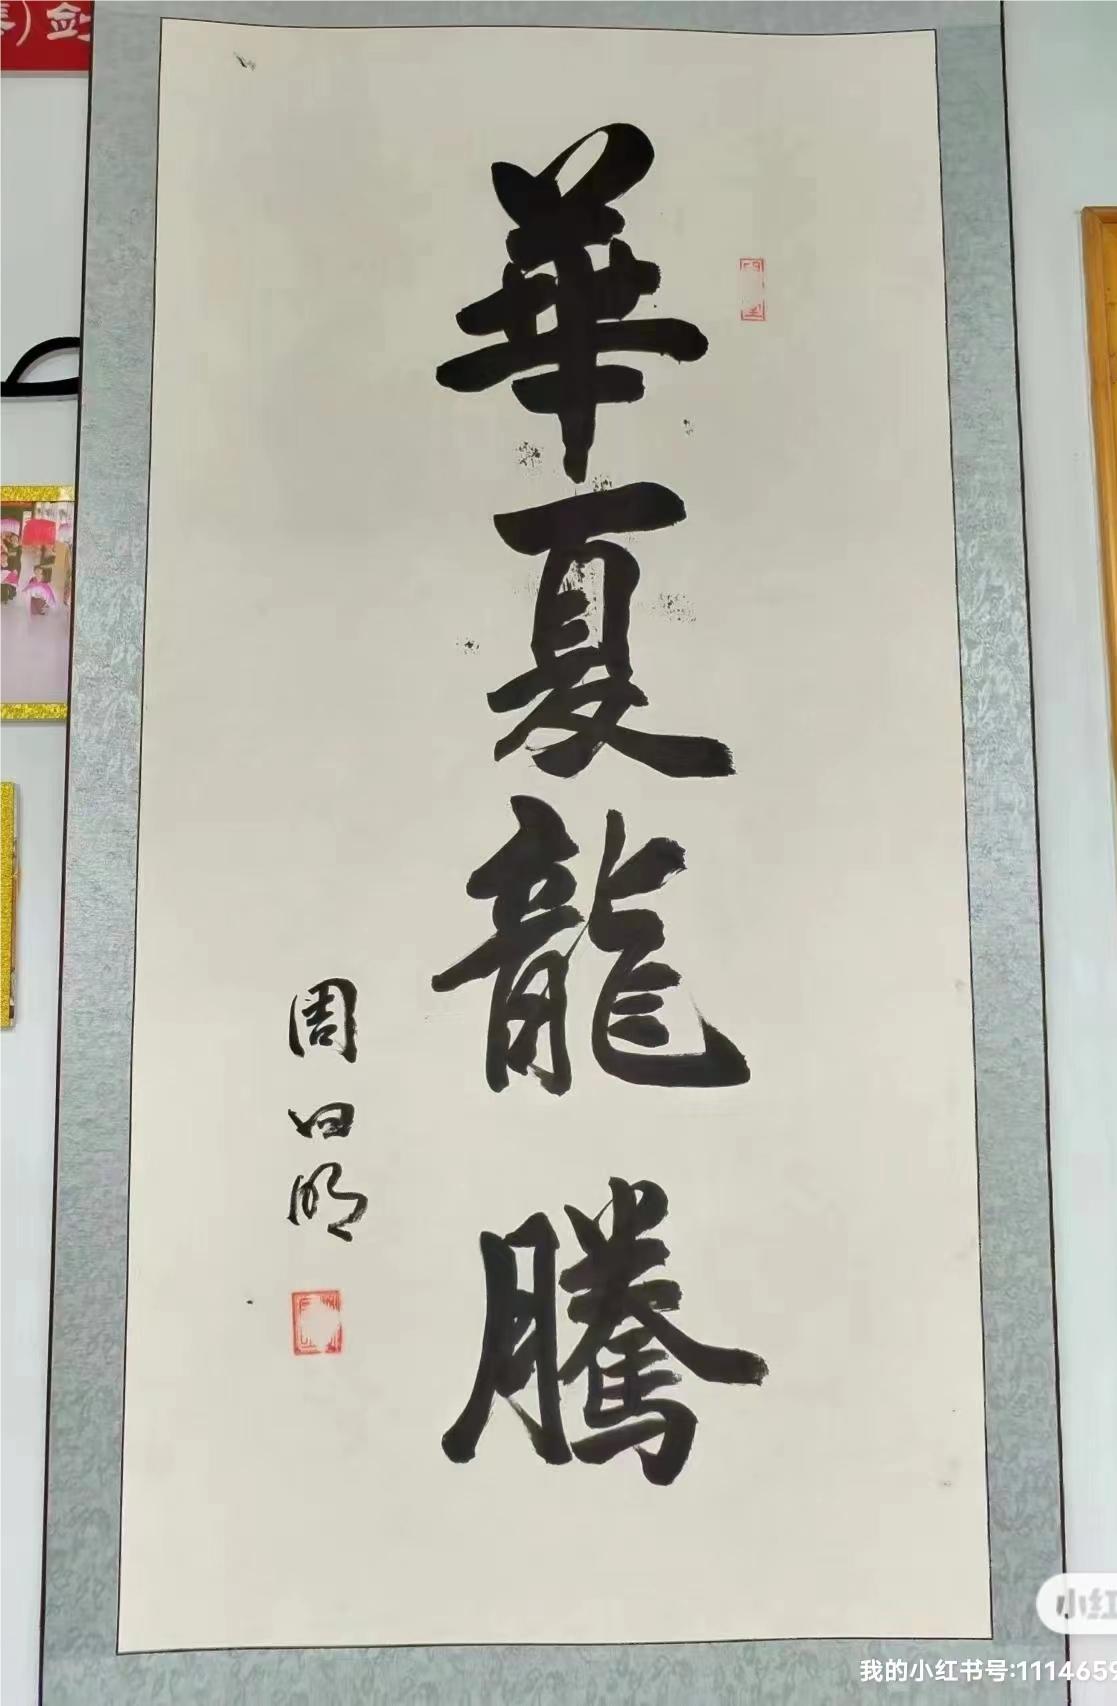 剑
華夏龍騰
周口明
小红
我的小红书号:1114659